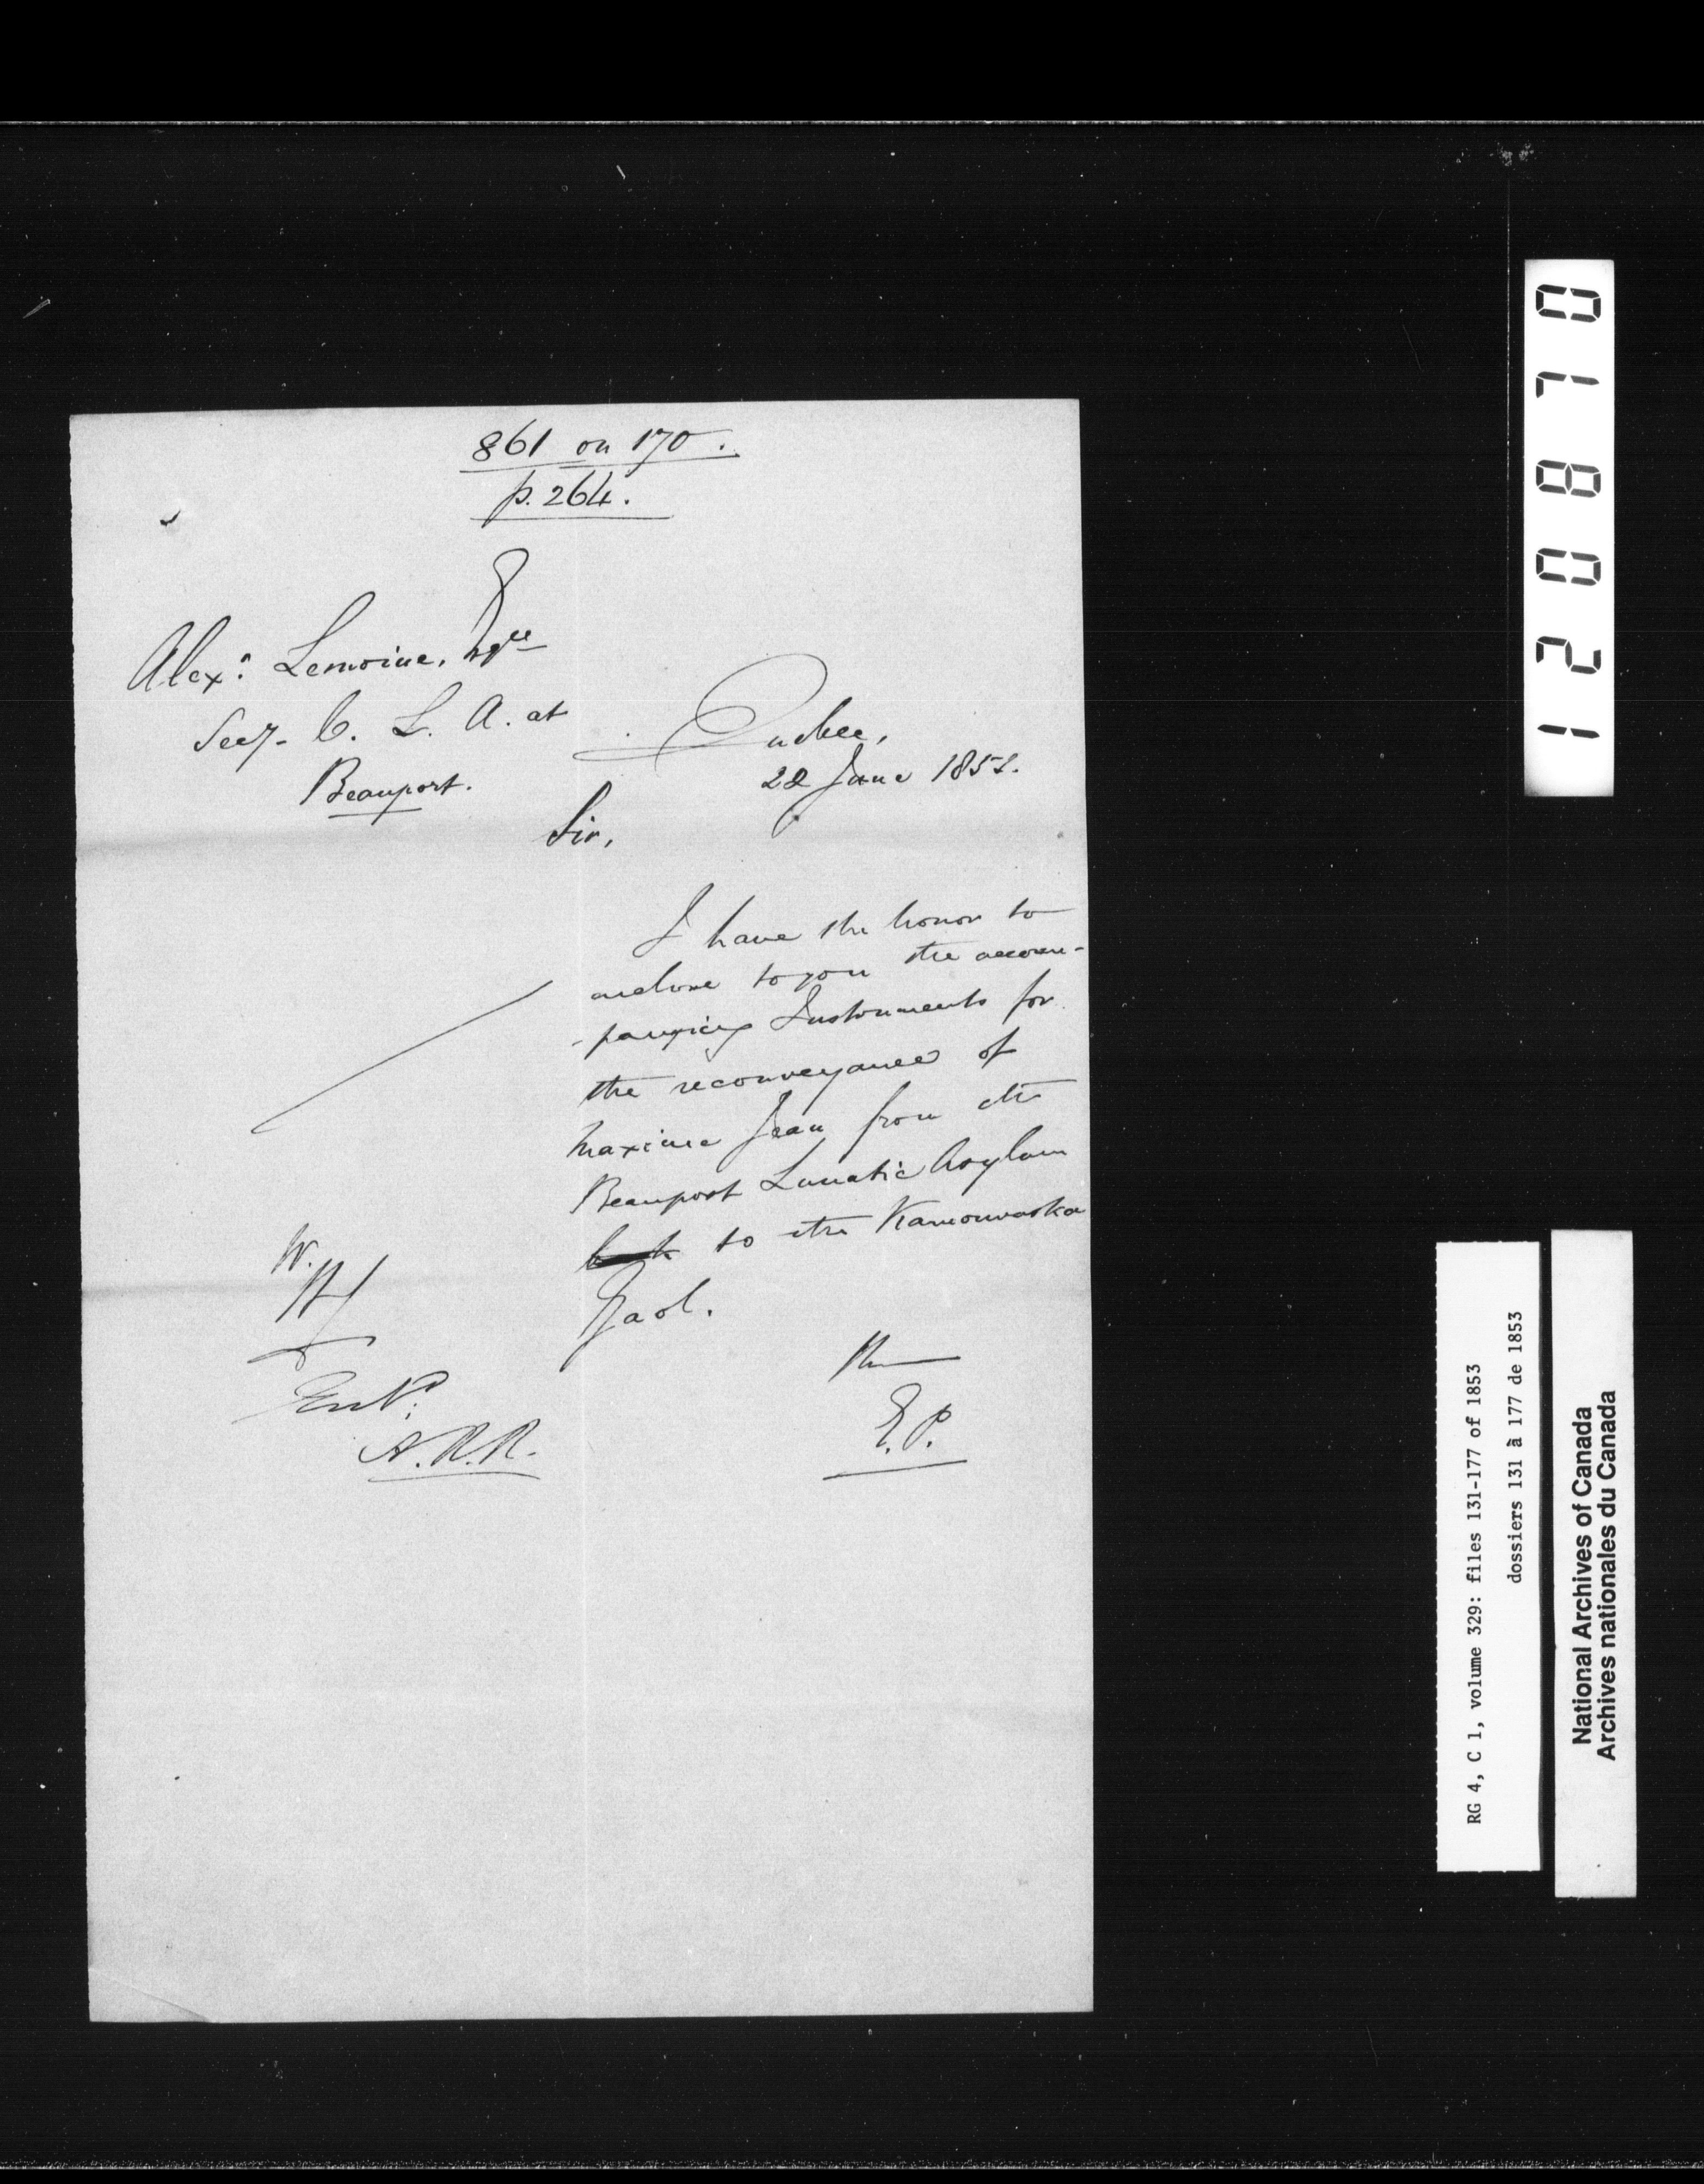 861 on 170.
p. 264.
Alexr. Lemoine, Esqre
Secy. C. L. A. at
Beauport.
Quebec,
22 June 1852.
Sir,
I have the honor to
enclose to you the accom-
-panying Instruments for
the reconveyance of
Maxime Jean from the
Beauport Lunatic Asylum
back to the Kamouraska
Gaol.
W.
H
Entd.
A.R.R.
E.P.
120870
RG 4, C 1, volume 329: files 131-177 of 1853
dossiers 131 à 177 de 1853
National Archives of Canada
Archives nationales du Canada